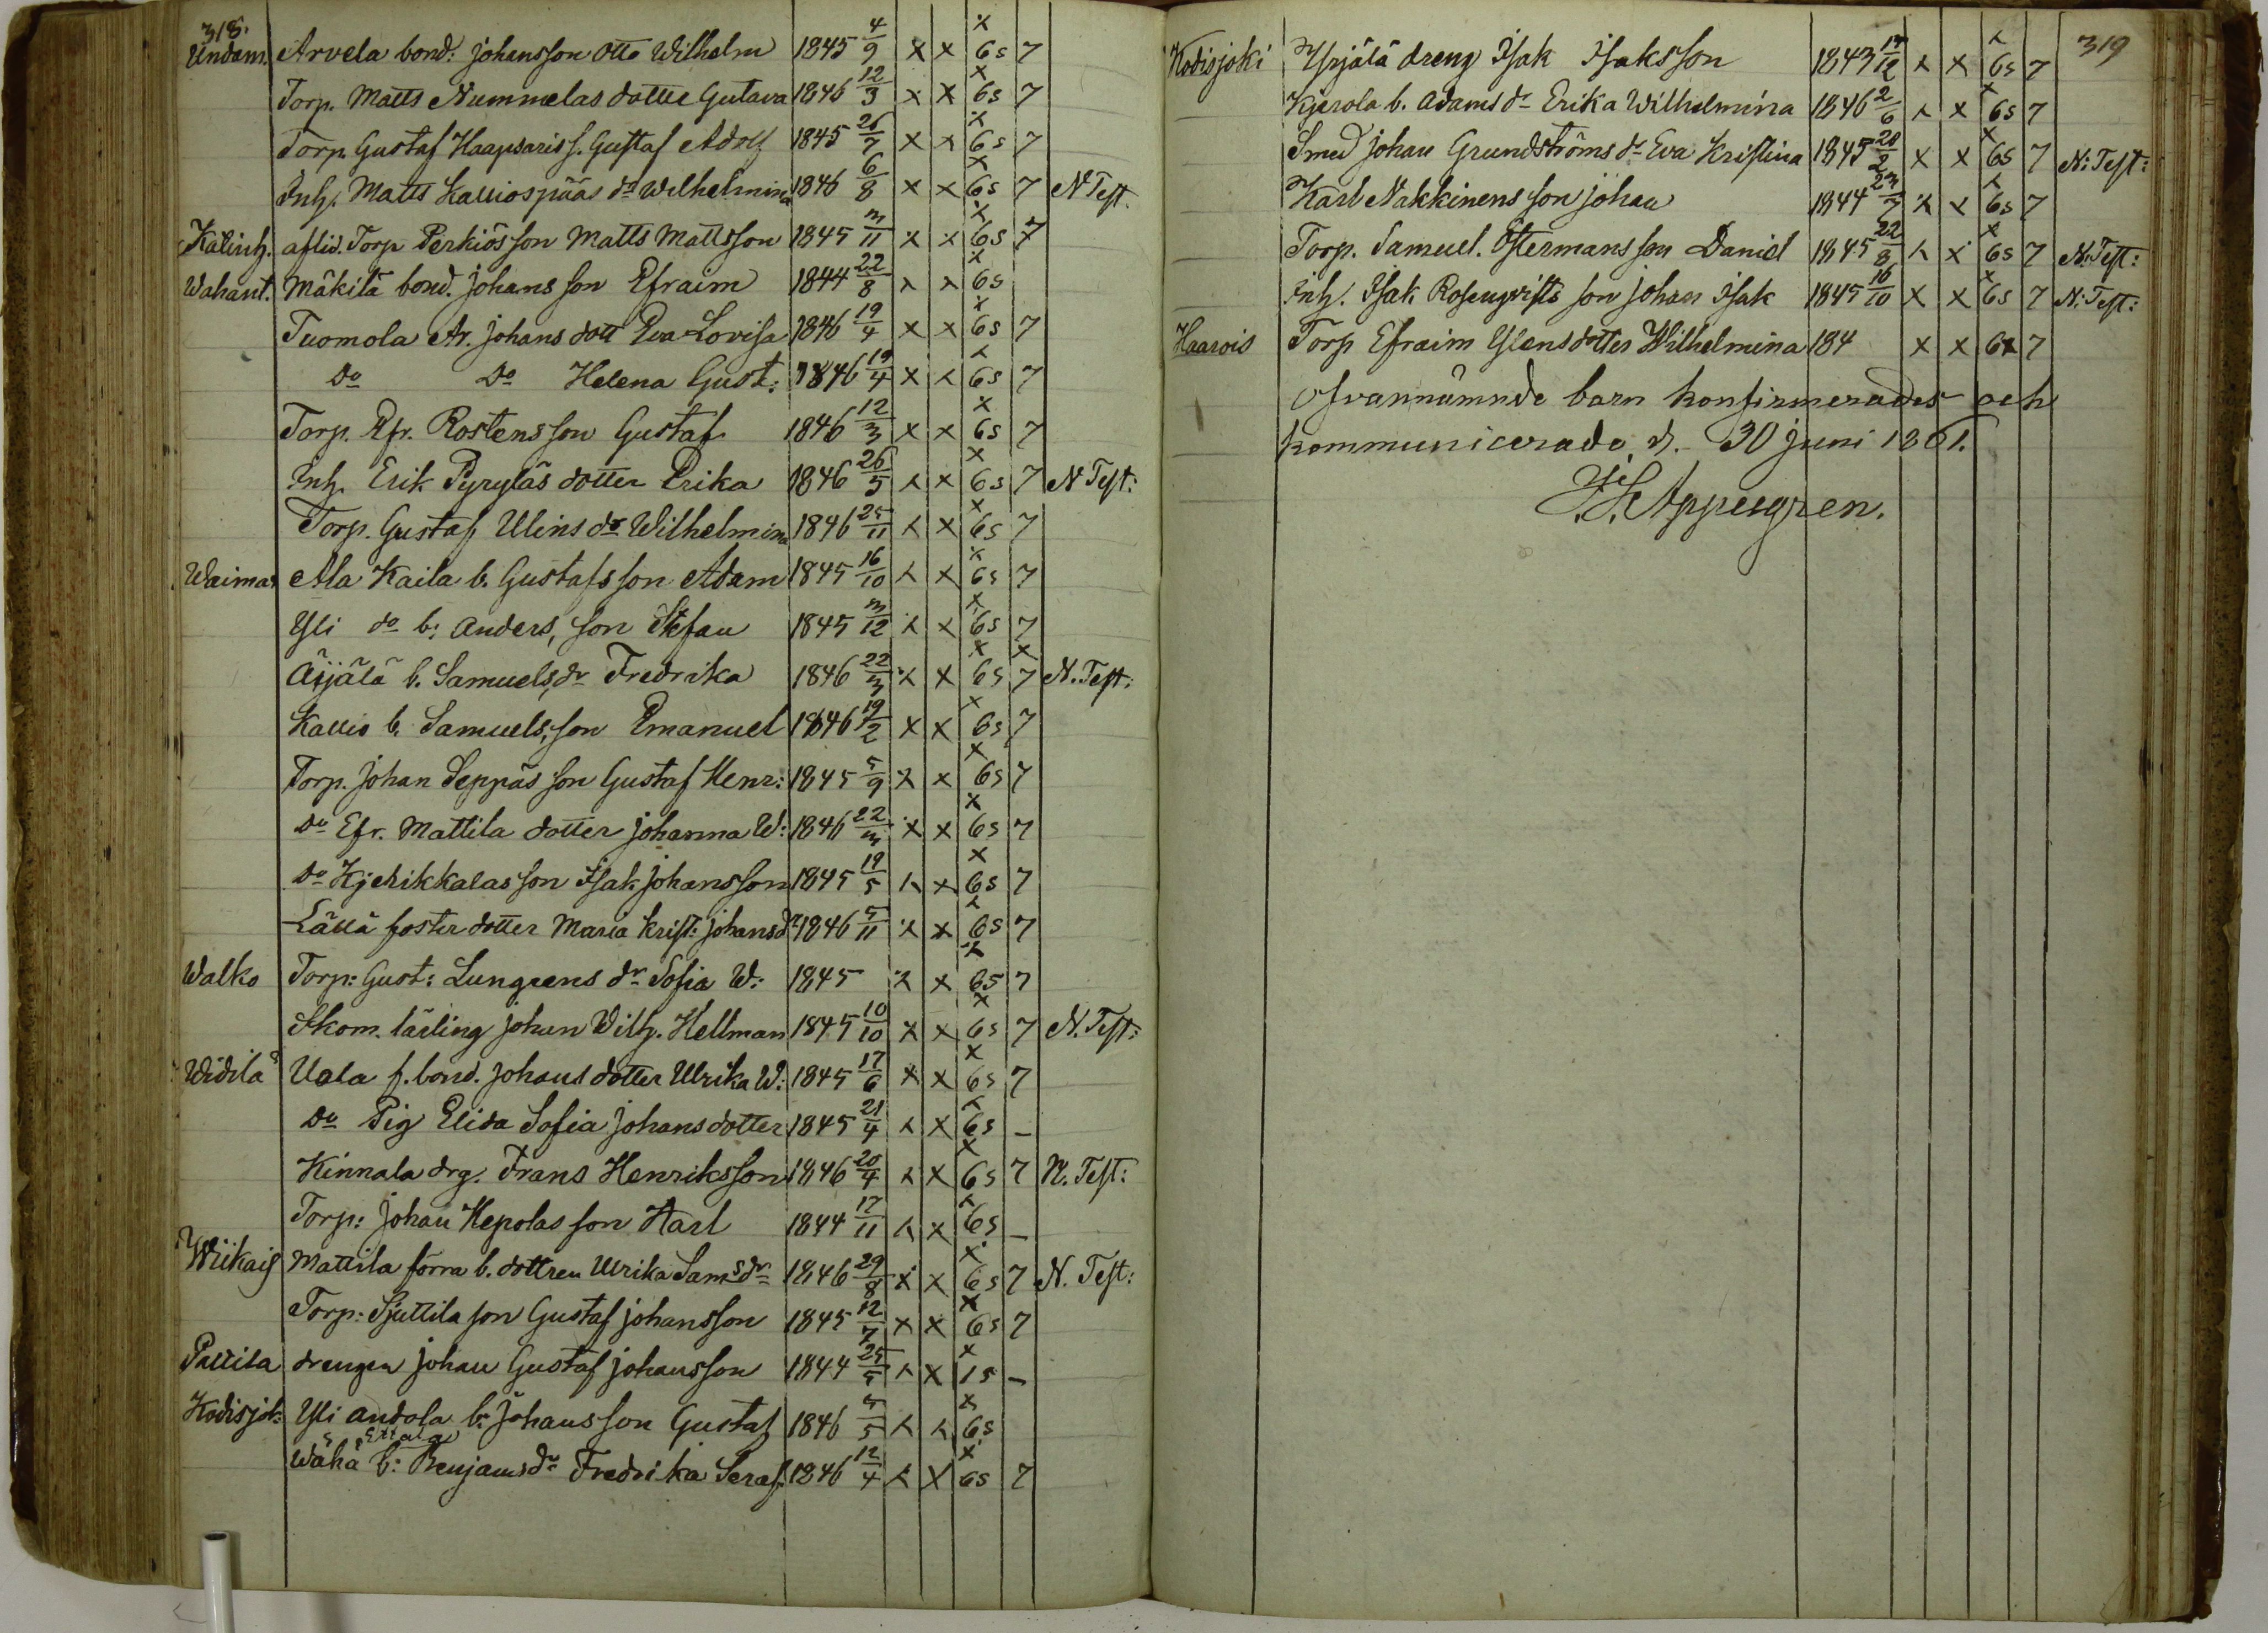 318.
Undam. Arvela bond: johansson Otto Wilhelm 1845 4/9 x x 6s 7
Torp. Matts Nummelas dotter Gustava 1846 12/3 x x 6s 7
Torp. Gustaf Haapsaris s. Gustaf Adolf 1845 26/7 x x 6s 7
Inh. Matts Kalliospääs dr Wilhelmina 1846 6/8 x x 6s 7 N Test.
Kälinh. aflid. Torp Perkiös son Matts Mattsson 1845 3/11 x x 6s 7
Wahant. Mäkilä bond. johans son Efraim 1844 22/8 x x 6s
Tuomola Ar. johans dott Eva Lovisa 1846 19/4 x x 6s 7
do do Helena Gust: 1846 19/4 x x 6s 7
Torp. Efr. Rostens son Gustaf 1846 12/3 x x 6s 7
Inh. Erik Pyryläs dotter Erika 1846 26/5 x x 6s 7 N Test:
Torp. Gustaf Ulins dr Wilhelmina 1846 25/11 x x 6s 7
Waimar Ala Kaila b. Gustafs son Adam 1845 16/10 x x 6s 7
Yli do b: Anders, son Stefan 1845 3/12 x x 6s 7
Äijälä b. Samuels, dr Fredrika 1846 22/3 x x 6s 7 N. Test:
Kallio b. Samuels, son Emanuel 1846 19/2 x x 6s 7
Torp. johan Seppäs son Gustaf Henr: 1845 5/9 x x 6s 7
do Efr. Mattila dotter johanna W: 1846 22/3 x x 6s 7
do Kjerikkalas son Isak johansson 1845 19/5 x x 6s 7
Lällä foster dotter Maria Krist: johansdr 1846 5/11 x x 6s 7
Walko Torp: Gust: Lungrens dr Sofia W: 1845 x x 6s 7
Skom. lärling johan Wilh. Hellman 1845 10/10 x x 6s 7 N. Test:
Widilä Uola f. bond. johans dotter Ulrika W: 1845 17/6 x x 6s 7
do Pig Elida Sofia johansdotter 1845 21/4 x x 6s –
Kinnala drg. Frans Henriksson 1846 20/4 x x 6s 7 N. Test:
Torp: johan Kepolas son Karl 1844 17/11 x x 6s –
Wiikais Mattila förra b. dottren Ulrika Sams dr 1846 29/8 x x 6s 7 N. Test:
Torp: Sjuttila son Gustaf johansson 1845 12/7 x x 6s 7
Pallila drengen johan Gustaf johansson 1844 25/5 x x 1s –
Kodisjok: Yli andola b: johans son Gustaf 1846 5/5 x x 6s
Wähä b: Benjams dr Fredrika Seraf. 1846 12/4 x x 6s 7
319
Kodisjoki Yrjälä dreng Isak Isaksson 1843 17/12 x x 6s 7
Kjerola b. Adams dr Erika Wilhelmina 1846 2/6 x x 6s 7
Smed johan Grundströms dr Eva Kristina 1845 20/2 x x 6s 7 N: Test:
Karl Nakkinens son johan 1844 23/7 x x 6s 7
Torp. Samuel Östermans son Daniel 1845 22/8 x x 6s 7 N: Test:
Inh. Isak Rosenqvists son johan Isak 1845 16/10 x x 6s 7 N: Test:
Haarois Torp Efraim Glans dotter Wilhelmina 184 x x 6x 7
Ofvannämnde barn konfirmerades och
kommunicerade d. 30 juni 1861.
Appelgren.